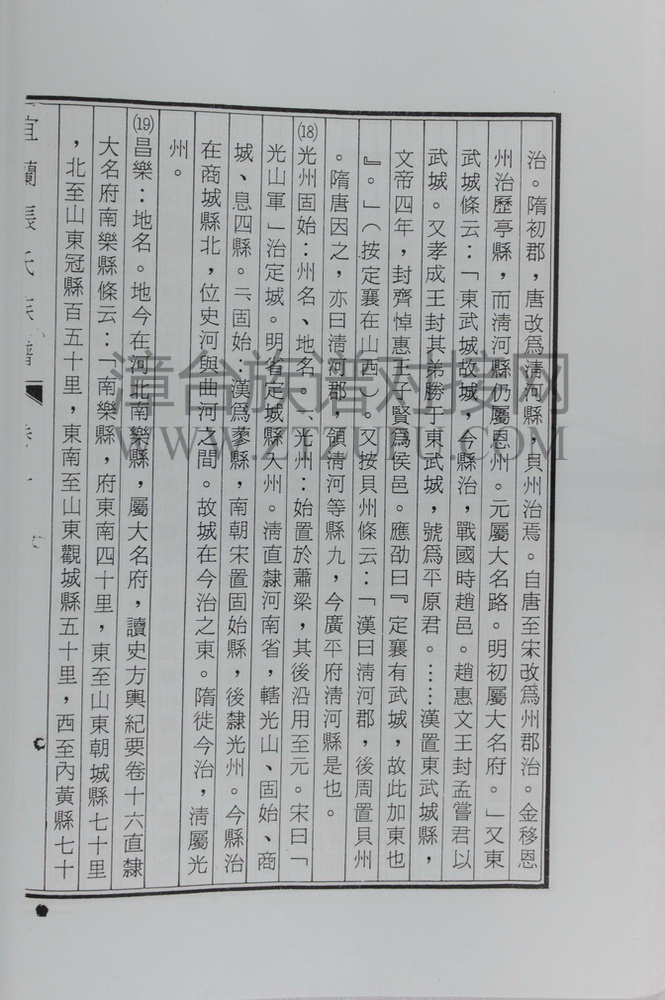 治。隋初郡，唐改爲清河縣，貝州治焉。自唐至宋改爲州郡治。金移恩
州治歷亭縣，而淸河縣仍屬恩州。元屬大名路。明初屬大名府。」又東
武城條云：「東武城故城，今縣治，戰國時趙邑。趙惠文王封孟嘗君以
武城。又孝成王封其弟勝于東武城，號爲平原君。……漢置東武城縣，
文帝四年，封齊悼惠王子賢爲侯邑。應劭曰『定襄有武城，故此加東也
』。」（按定襄在山西）。又按貝州條云：「漢曰淸河郡，後周置貝州
。隋唐因之，亦曰淸河郡，領淸河等縣九，今廣平府淸河縣是也。
⒅光州固始：州名、地名。一、光州：始置於蕭梁，其後沿用至元。宋曰「
光山軍」治定城。明省定城縣入州。淸直隸河南省，轄光山、固始、商
城、息四縣。二、固始：漢爲蓼縣，南朝宋置固始縣，後隸光州。今縣治
在商城縣北，位史河與曲河之間。故城在今治之東。隋徙今治，淸屬光
州。
⒆昌樂：地名。地今在河北南樂縣，屬大名府，讀史方輿紀要卷十六直隸
大名府南樂縣條云：「南樂縣，府東南四十里，東至山東朝城縣七十里
，北至山東冠縣百五十里，東南至山東觀城縣五十里，西至內黃縣七十
宜蘭張氏族譜
漳台族谱对接网
WWW.ZTZUPU.COM